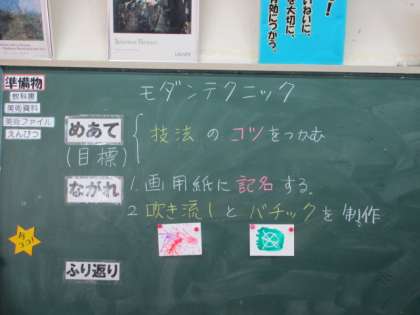 ていねいに、
を大切に、
有効につかう。
準備物
教科書
美術資料
美術ファイル
えんぴつ
モダンテクニック
めあて
(目標)
技法のコツをつかむ
ながれ
1.画用紙に記名する。
2.吹き流しとバチックを制作
ふり返り